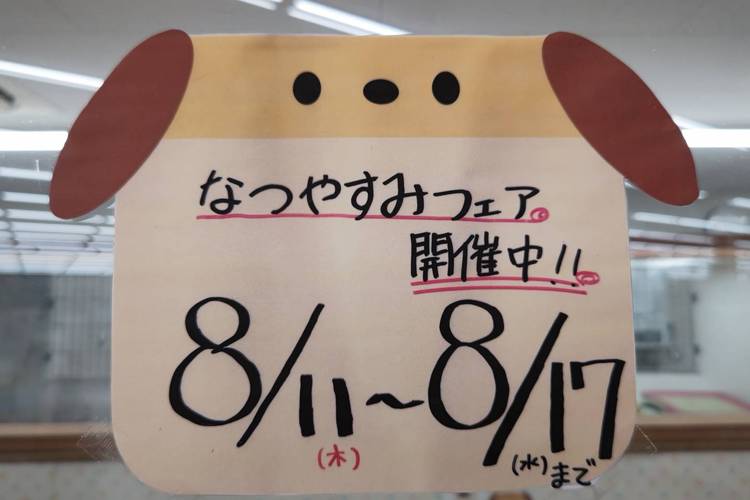 なつやすみフェア。
開催中!!
8/11〜8/17
(木) (水)まで